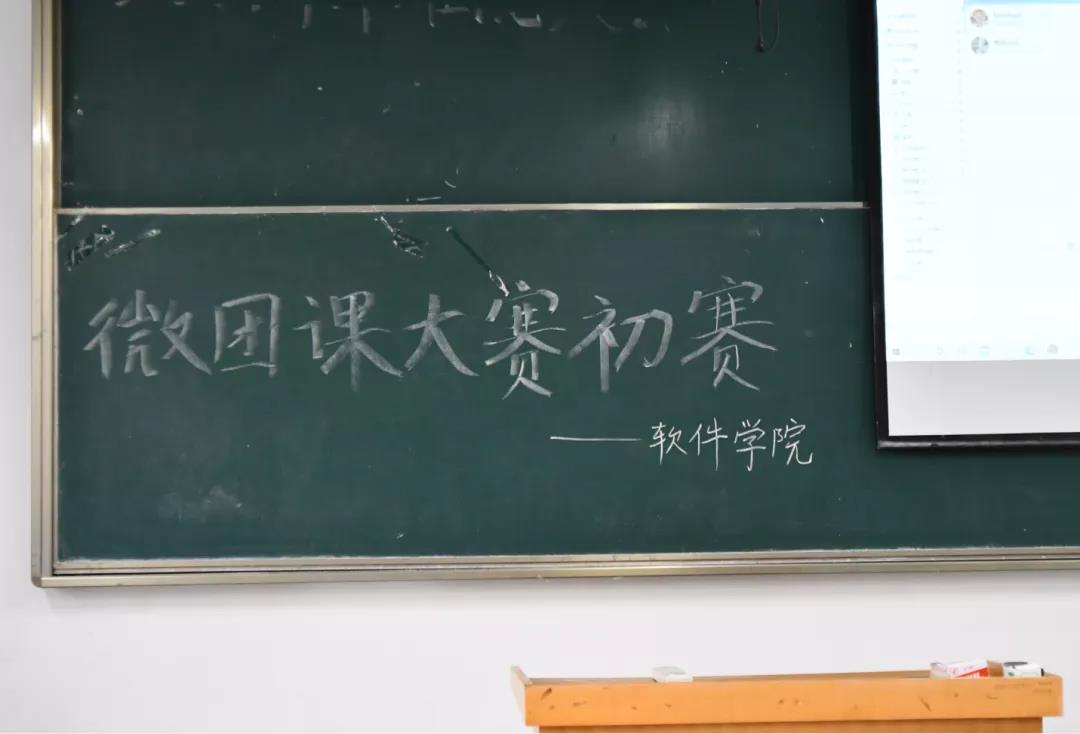 微团课大赛初赛
——软件学院